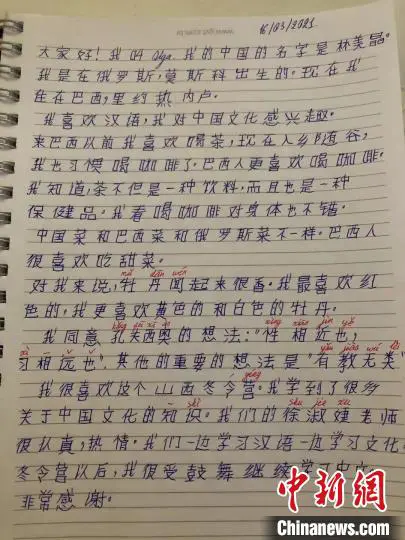 16/03/2021
大家好！我叫 Olga. 我的中国的名字是林美晶。
我是在俄罗斯，莫斯科出生的。现在我
住在巴西，里约热内卢。
我喜欢汉语，我对中国文化感兴趣。
来巴西从前我喜欢喝茶，现在入乡随俗，
我也习惯喝咖啡了。巴西人更喜欢喝咖啡。
我知道，茶不但是一种饮料，而且也是一种
保健品。我看喝咖啡对身体也不错。
中国菜和巴西菜和俄罗斯菜不一样。巴西人
很喜欢吃甜菜。
对我来说，牡丹闻起来很香。我最喜欢红
色的，我更喜欢黄色的和白色的牡丹。
我同意孔夫西奥的想法："性相近也，
习相远也". 其他的重要的想法是"有教无类"
我很喜欢这个山西冬令营。我学到了很多
关于中国文化的知识。我们的徐淑婕老师
很认真，热情。我们一边学习汉语一边学习文化
冬令营以后，我很受鼓舞继续学习中文。
非常感谢。
中新网
Chinanews.com